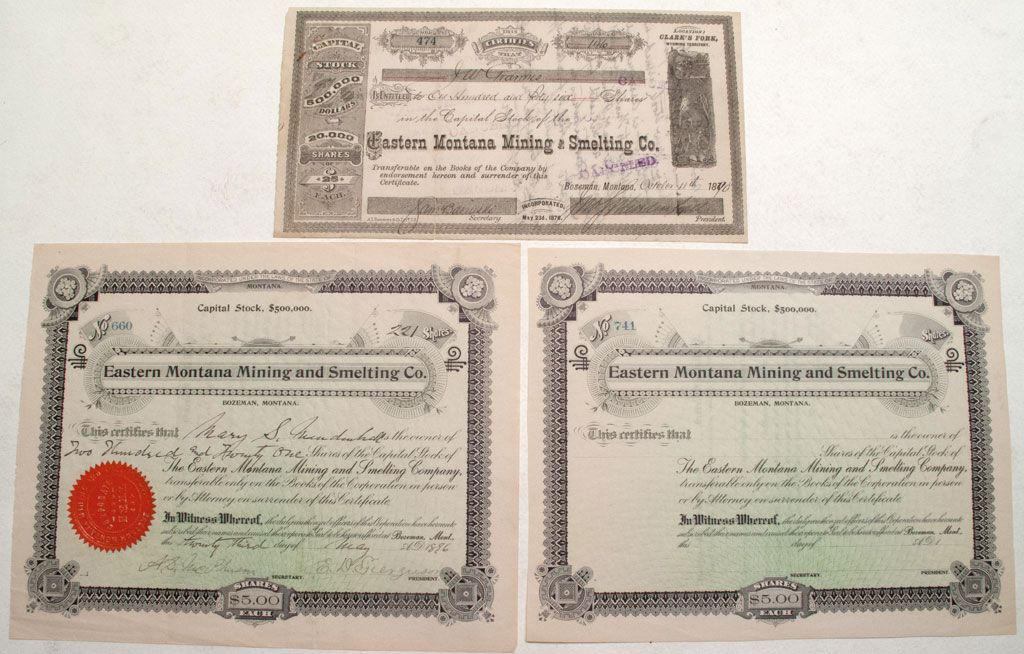 CAPITAL
STOCK
500.000
DOLLARS
20.000
SHARES
OF
$25
EACH.
474
THIS
CERTIFIES
THAT
LOCATION:
CLARK'S FORK,
WYOMING TERRITORY.
Is Entitled to One Hundred and Shares
in the Capital Stock of the
Eastern Montana Mining & Smelting Co.
Transferable on the Books of the Company by
endorsement hereon and surrender of this
Certificate.
CANCELLED.
Bozeman, Montana, October 11th 18
INCORPORATED,
May 23d, 1878.
Secretary
President.
INCORPORATED UNDER THE LAWS OF THE
MONTANA.
Capital Stock, $500,000.
No 660
221 Shares
Eastern Montana Mining and Smelting Co.
BOZEMAN, MONTANA.
This certifies that Mary S. Mendenhall is the owner of
Two Hundred and Twenty One Shares of the Capital Stock of
The Eastern Montana Mining and Smelting Company,
transferable only on the Books of the Corporation in person
or by Attorney on surrender of this Certificate.
In Witness Whereof, the duly authorized officers of this Corporation have hereunto
subscribed their names and caused the corporate Seal to be hereto affixed at Bozeman, Mont.,
the Twenty Third day of May A.D. 1896
SECRETARY.
E. D. Ferguson PRESIDENT.
SHARES
$5.00
EACH
INCORPORATED UNDER THE LAWS OF THE
MONTANA.
Capital Stock, $500,000.
No 741
Shares
Eastern Montana Mining and Smelting Co.
BOZEMAN, MONTANA.
This certifies that is the owner of
Shares of the Capital Stock of
The Eastern Montana Mining and Smelting Company,
transferable only on the Books of the Corporation in person
or by Attorney on surrender of this Certificate.
In Witness Whereof, the duly authorized officers of this Corporation have hereunto
subscribed their names and caused the corporate Seal to be hereto affixed at Bozeman, Mont.,
this day of A.D. 1
SECRETARY. PRESIDENT.
SHARES
$5.00
EACH